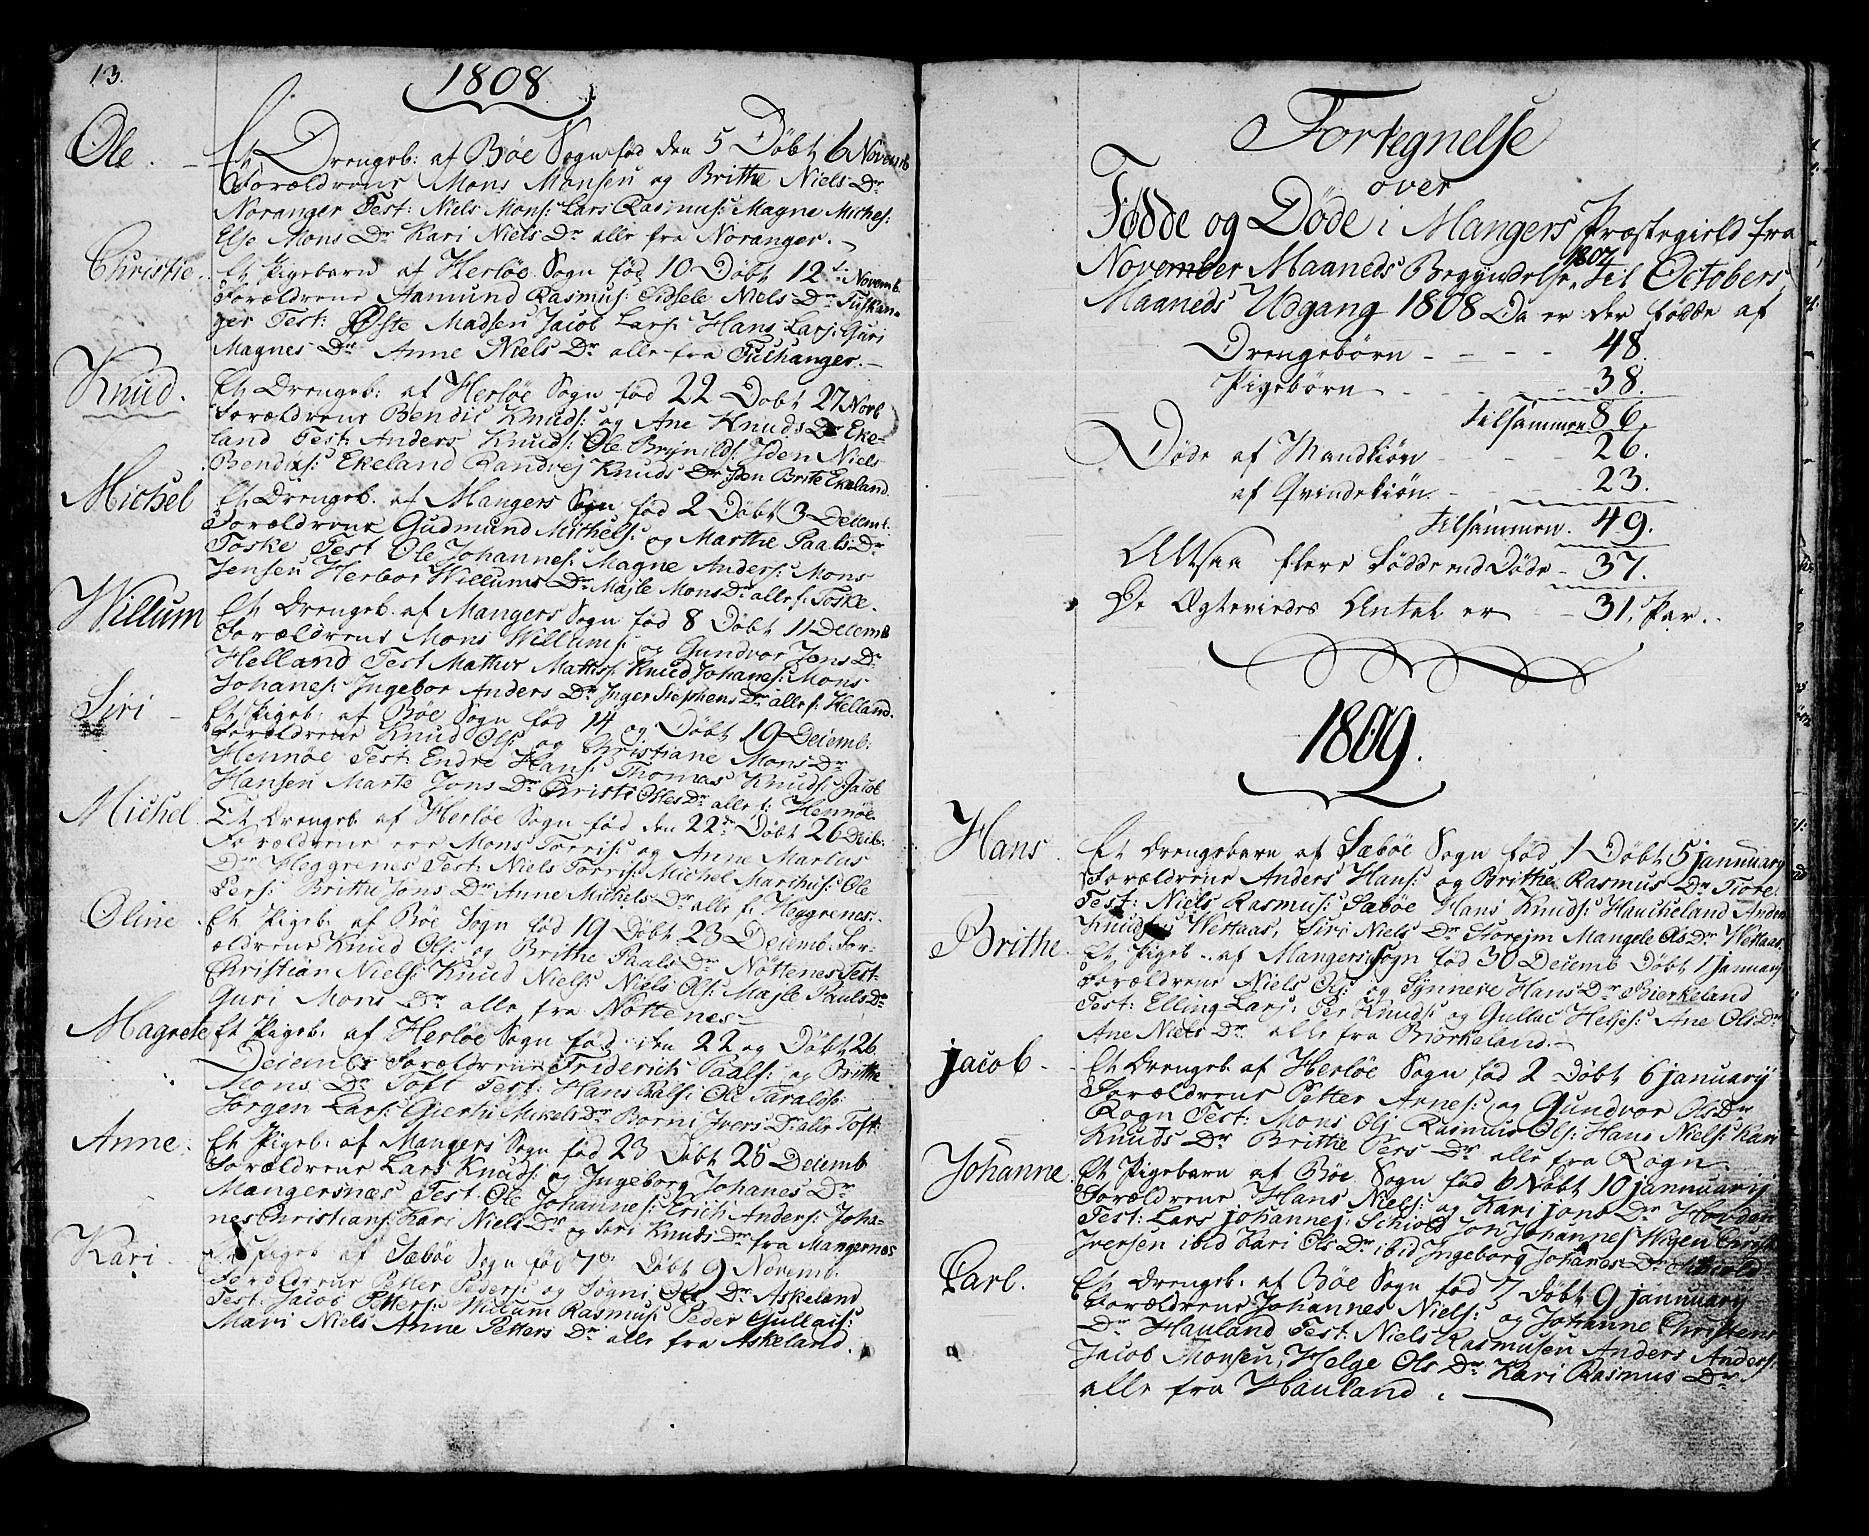 13.
1808
Ole. Et Drengeb: af Bøe Sogn fød den 5 Døbt 6 Novemb
Forældrene Mons Monsen og Brithe Niels Dr
Noranger Test: Niels Mons: Lars Rasmus: Magne Miches:
Else Mons Dr Kari Niels Dr alle fra Noranger.
Christie. Et Pigebarn af Herløe Sogn fød 10 Døbt 12t: Novemb.
Forældrene Aamund Rasmus: Sidsele Niels Dr
ger Test: Øste Madsen Jacob Lars: Hans Lars: Guri
Magnes Dr Anne Niels Dr alle fra
Knud. Et Drengeb: af Herløe Sogn fød 22 Døbt 27 Novb
Forældrene Bendic Knuds: og Ane Knuds Dr Eke-
land Test: Anders Knuds: Ole Brynilds: Iden Niels
Bendix: Ekeland Randvej Knuds Dr Iden Brite Ekeland
Michel Et Drengeb. af Mangers Sogn fød 2 Døbt 3 Decemb:
Forældrene Gudmund Michels: og Marthe Paals Dr
Toske Test Ole Johannes: Magne Anders: Mons
Jensen Herbor Willums Dr Majle Mons Dr alle f: Toske.
Willum Et Drengeb. af Mangers Sogn fød 8 Døbt 11 Decemb
Forældrene Mons Willums: og Gundvor Jons Dr
Helland Test Mathis Mathis: Knud Johanes: Mons
Johanes: Ingebor Anders Dr Inger Stephens Dr alle f: Helland.
Siri Et Pigeb: af Bøe Sogn fød 14 og Døbt 19 Decemb:
Forældrene Knud Ols: og Christiane Mons Dr
Hennøe Test Endre Hans: Thomas Knuds: Jacob
Hansen Marte Jons Dr Christi Oles Dr alle f: Hennøe
Michel. Et Drengeb. af Herløe Sogn fød den 22de Døbt 26 Decb:
Forældrene ere Mons Torris: og Anne Marcus
Dr Heggrenes Test: Niels Torris: Michel Marchus: Ole
Pers: Brithe Jons Dr Anne Michels Dr alle f: Heggrenes:
Oline. Et Pigeb. af Bøe Sogn fød 19 Døbt 23 Decemb: For-
ældrene Knud Ols: og Brithe Paals Dr Nøttenes Test:
Christian Niels: Knud Niels: Niels Ols: Majle Pauls Dr
Guri Mons Dr alle fra Nøttenes
Magrete Et Pigeb: af Herløe Sogn fød den 22 og Døbt 26
Decembr Forældrene Friderich Paals: og Brithe
Mons Dr Toft Test: Hans Pals: Ole Taralds:
Jørgen Lars: Giertr. Mikels Dr Borni Ivers Dr alle Toft:
Anne. Et Pigeb: af Mangers Sogn fød 23 Døbt 26 Decemb
Forældrene Lars Knuds: og Ingeborg Johanes Dr
Mangersnæs Test Ole Johannes: Erich Anders: Joha-
nes Christians: Kari Niels Dr og Siri Knuds Dr fra Mangernæs
Kari. Et Pigeb af Sæbøe Sogn fød 7de Døbt 9 Novemb.
Forældrene Petter Peders: og Søgni Ols Dr Askeland
Test: Jacob Petters: Willum Rasmus: Peder Gullacs:
Mari Niels Anne Petters Dr alle fra Askeland.
Fortegnelse
over
Fødde og Døde i Mangers Præstegield fra
November Maaneds Begyndelse 1807 til Octobers
Maaneds Udgang 1808 Da er der fødde af
Drengebørn - - - - 48.
Pigebørn - - - - 38.
Tilsammen 86.
Døde af Mandkiøn - - - 26.
af Qvindekiøn - - - 23.
tilsammen. 49.
Altsaa flere fødde end Døde - 37.
De Ægteviedes Antal er - 31. Par.
1809.
Hans. Et Drengebarn af Sæbøe Sogn fød 1 Døbt 5 January
Forældrene Anders Hans: og Brithe Rasmus Dr
Test: Niels Rasmus: Sæbøe Hans Knuds: Haucheland Anders
Knudsen Wettaas, Siri Niels Dr Storejm Mangele Ols Dr Wettaas.
Brithe. Et Pigeb. af Mangers Sogn fød 30 Decemb Døbt 1 January
Forældrene Niels Ols: og Synneve Hans Dr Bierkeland
Test: Elling Lars: Per Knuds: og Gullac Heljes: Ane Ols Dr
Ane Niels Dr alle fra Biørkeland.
Jacob. Et Drengeb. af Herløe Sogn fød 2 Døbt 6 January
Forældrene Petter Arnes: og Gundvor Ols Dr
Rogn Test: Mons Ols Rasmus Ols: Hans Niels: Kari
Knuds Dr Brithe Pers Dr alle fra Rogn.
Johanne. Et Pigebarn af Bøe Sogn fød 6 Døbt 10 January
Forældrene Hans Niels: og Kari Jons Dr Hovden
Test: Lars Johannes: Schiold Jon Johannes
Iversen ibid Kari Ols Dr ibid Ingeborg Johanes Dr Schiold
Carl. Et Drengeb: af Bøe Sogn fød 7 Døbt 9 January
Forældrene Johannes Niels: og Johanne Christens
Dr Hauland Test: Niels Rasmusen Anders Anders:
Jacob Monsen, Helge Ols Dr Kari Rasmus Dr
alle fra Hauland.